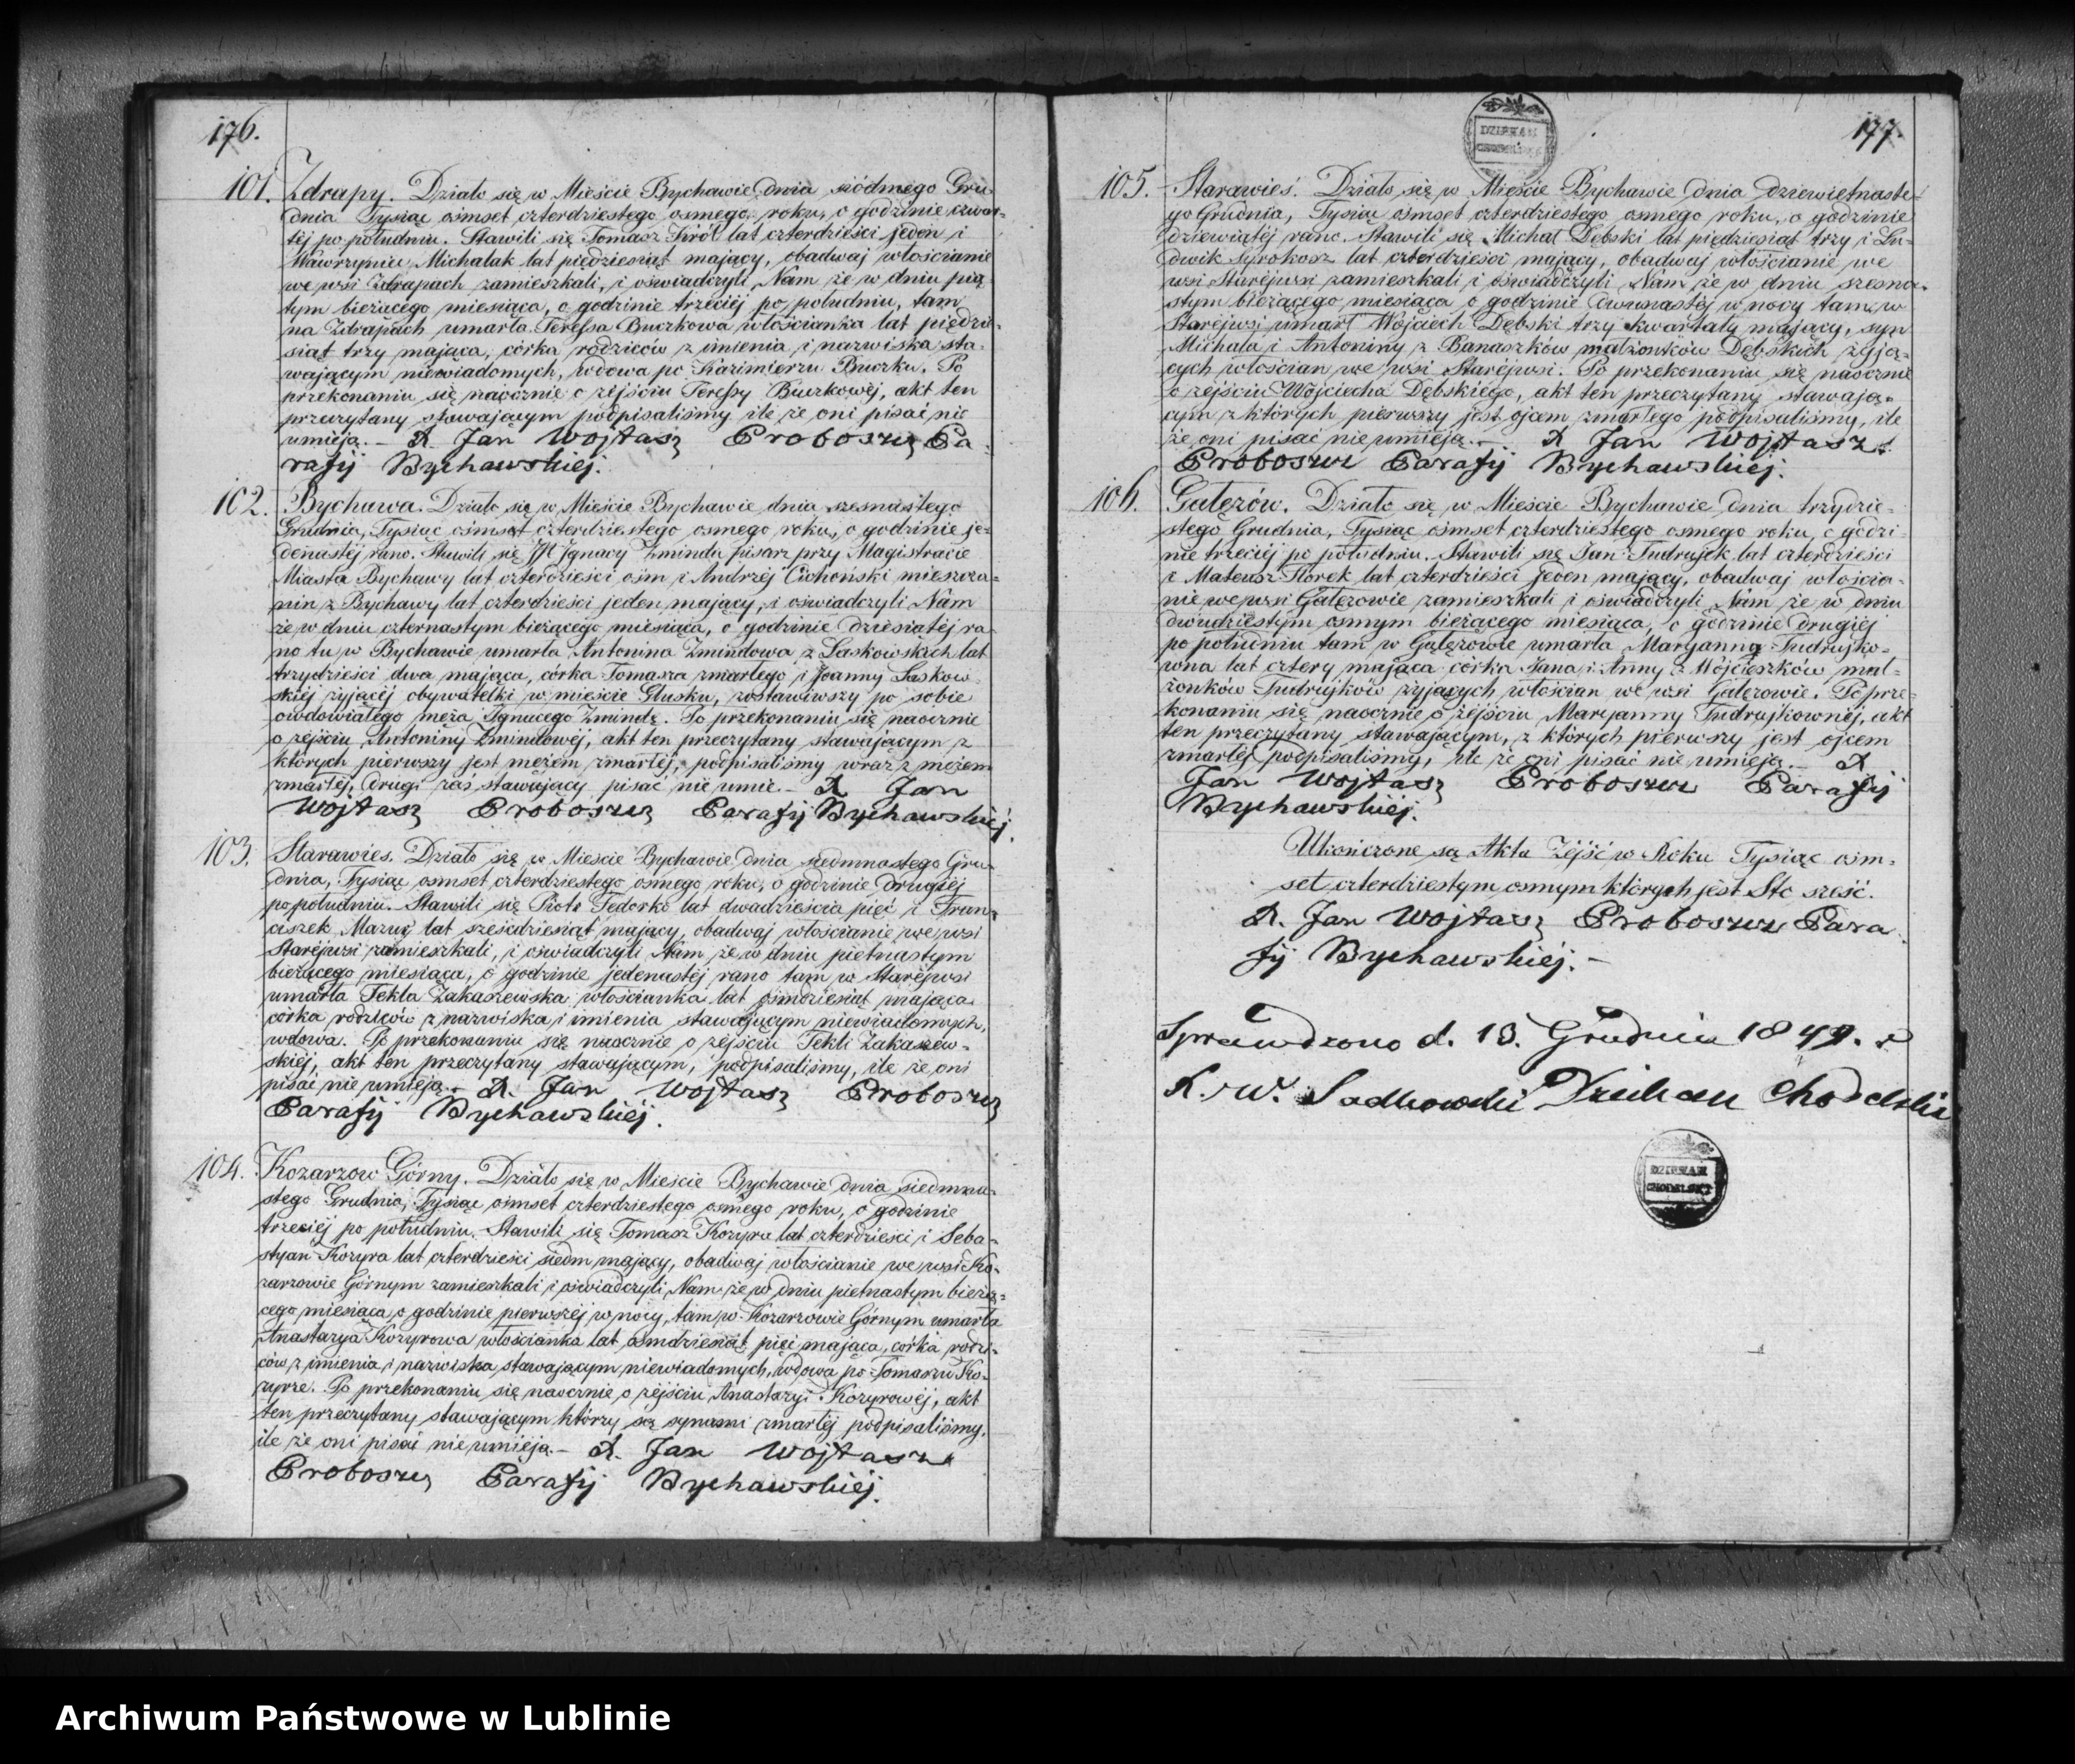 176.
101. Zdrapy. Działo się w Mieście Bychawie dnia siódmego Gru-
dnia Tysiąc ośmset czterdziestego osmego roku, o godzinie czwar-
téj po południu. Stawili się Tomasz Król lat czterdzieści jeden i
Wawrzyniec Michalak lat piędziesiąt mający, obadwaj włościanie
we wsi Zdrapach zamieszkali, i oswiadczyli Nam że w dniu pią-
tym bieżącego miesiąca, o godzinie trzeciéj po południu, tam
na Zdrapach umarła Teressa Buczkowa włościanka lat piędzie-
siąt trzy mająca, córka rodziców z imienia i nazwiska sta-
wającym niewiadomych, wdowa po Kazimierzu Buczku. Po
przekonaniu się naocznie o zejściu Teressy Buczkowéj, akt ten
przeczytany stawającym podpisaliśmy ile że oni pisać nie
umieją. – X. Jan Wojtasz Proboszcz Pa-
rafij Bychawskiej.
102. Bychawa. Działo się w Mieście Bychawie dnia szesnastego
Grudnia, Tysiąc ośmset czterdziestego osmego roku, o godzinie je-
denastéj rano. Stawili się Ignacy Zminda pisarz przy Magistracie
Miasta Bychawy lat czterdzieści ośm i Andrzéj Cichoński mieszcza-
nin z Bychawy lat czterdzieści jeden mający, i oświadczyli Nam
że w dniu czternastym bieżącego miesiąca, o godzinie dziesiatéj ra-
no tu w Bychawie umarła Antonina Zmindowa z Laskowskich lat
trzydzieści dwa mająca, córka Tomasza zmarłego i Joanny Laskow-
skiéj żyjącéj obywatelki w mieście Glusku, zostawiwszy po sobie
owdowiałego męża Ignacego Zmindę. Po przekonaniu się naocznie
o zejściu Antoniny Zmindowéj, akt ten przeczytany stawającym z
których pierwszy jest mężem zmarłéj, podpisaliśmy wraz z mężem
zmarłéj, drugi zaś stawający pisać nie umie. – X Jan
Wojtasz Proboszcz Parafij Bychawskiéj.
103. Starawies. Działo się w Mieście Bychawie dnia siedmnastego Gru-
dnia, Tysiąc osmset czterdziestego osmego roku, o godzinie drugiéj
po południu. Stawili się Piotr Fedorko lat dwadzieścia pięć i Fran-
ciszek Mazur lat sześćdziesiąt mający, obadwaj włościanie we wsi
Staréjwsi zamieszkali, i oświadczyli Nam że w dniu piętnastym
bieżącego miesiąca, o godzinie jedenastéj rano tam w Staréjwsi
umarła Tekla Zakaszewska włościanka lat ośmdziesiąt mająca
córka rodziców z nazwiska i imienia stawającym niewiadomych,
wdowa. Po przekonaniu się naocznie o zejściu Tekli Zakaszew-
skiéj, akt ten przeczytany stawającym, podpisaliśmy, ile że oni
pisać nie umieją. – X. Jan Wojtasz Proboszcz
Parafij Bychawskiéj.
104. Kozarzow Górny. Działo się w Mieście Bychawie dnia siedmna-
stego Grudnia, Tysiąc ośmset czterdziestego osmego roku, o godzinie
trzeciéj po południu. Stawili się Tomasz Kozyra lat czterdzieści i Seba-
styan Kozyra lat czterdzieści siedm mający, obadwaj włościanie we wsi Ko-
zarzowie Górnym zamieszkali i oświadczyli Nam że w dniu piętnastym bieżą-
cego miesiąca, o godzinie pierwszéj w nocy, tam w Kozarzowie Górnym umarła
Anastazya Kozyrowa włościanka lat ośmdziesiąt pięć mająca, córka rodzi-
ców z imienia i nazwiska stawającym niewiadomych, wdowa po Tomaszu Ko-
zyrze. Po przekonaniu się naocznie o zejściu Anastazyi Kozyrowéj, akt
ten przeczytany stawającym którzy są synami zmarłéj podpisaliśmy,
ile że oni pisać nie umieją. – X. Jan Wojtasz
Proboszcz Parafij Bychawskiéj.
177.
DZIEKAN
CHODELSKI
105. Starawieś. Działo się w Mieście Bychawie dnia dziewiętnaste-
go Grudnia, Tysiąc ośmset czterdziestego osmego roku, o godzinie
dziewiątéj rano. Stawili się Michał Dębski lat piędziesiąt trzy i Lu-
dwik Syrokosz lat czterdzieści mający, obadwaj włościanie we
wsi Staréjwsi zamieszkali i oświadczyli Nam że w dniu szesna-
stym bieżącego miesiąca o godzinie dwunastéj w nocy tam w
Staréjwsi umarł Wojciech Dębski trzy kwartały mający, syn
Michała i Antoniny z Banaszków małżonków Dębskich żyją-
cych włościan we wsi Staréjwsi. Po przekonaniu się naocznie
o zejściu Wojciecha Dębskiego, akt ten przeczytany stawają-
cym z których pierwszy jest ojcem zmarłego podpisaliśmy, ile
że oni pisać nie umieją. – X Jan Wojtasz
Proboszcz Parafij Bychawskiéj.
106. Gałęzów. Działo się w Mieście Bychawie dnia trzydzie-
stego Grudnia, Tysiąc ośmset czterdziestego osmego roku, o godzi-
nie trzeciéj po południu. Stawili się Jan Tudrujek lat czterdzieści
i Mateusz Florek lat czterdzieści jeden mający, obadwaj włościa-
nie we wsi Gałęzowie zamieszkali i oświadczyli Nam że w dniu
dwudziestym ósmym bieżącego miesiąca, o godzinie drugiéj
po południu tam w Gałęzowie umarła Maryanna Tudrujko-
wna lat cztery mająca córka Jana i Anny z Wójcieszków mał-
żonków Tudrujków żyjących włościan we wsi Gałęzowie. Po prze-
konaniu się naocznie o zejściu Maryanny Tudrujkownéj, akt
ten przeczytany stawającym, z których pierwszy jest ojcem
zmarłéj podpisaliśmy, ile że oni pisać nie umieją. – X
Jan Wojtasz Proboszcz Parafij
Bychawskiéj.
Ukończone są Akta Zejść w Roku Tysiąc ośm-
set czterdziestym osmym których jest Sto sześć.
X. Jan Wojtasz Proboszcz Para
fij Bychawskiéj. –
Sprawdzono d. 13. Grudnia 1849. r
X. W. Sadkowski Dziekan Chodelski
DZIEKAN
CHODELSKI
Archiwum Państwowe w Lublinie